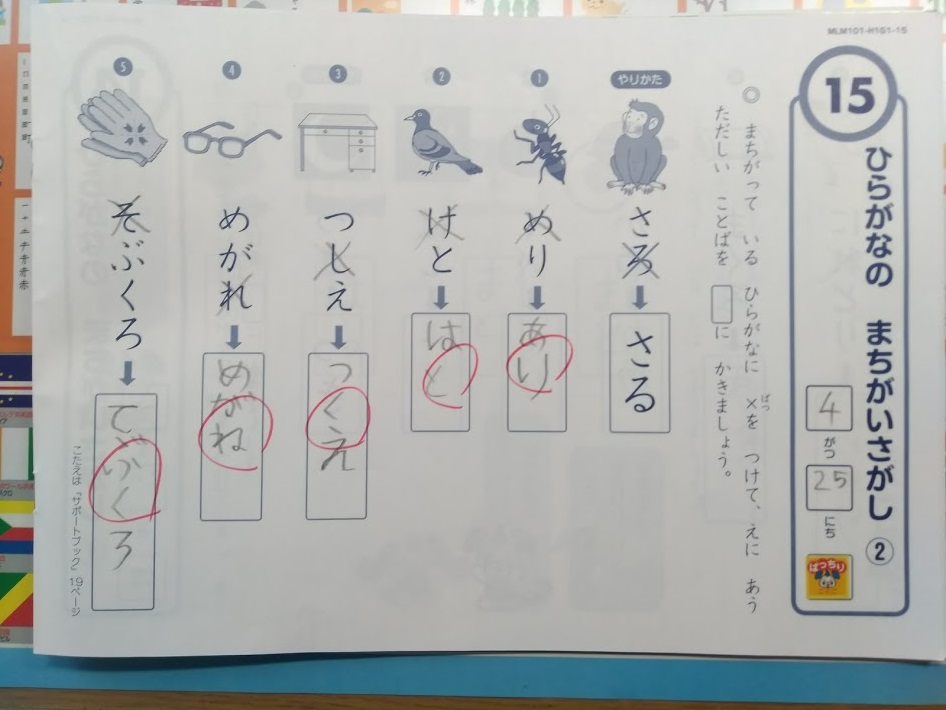 MLM101-H161-15
15
ひらがなの まちがいさがし②
4
がつ
25
にち
ばっちり
◎ まちがって いる ひらがなに ×を つけて、えに あう
ばつ
ただしい ことばを □に かきましょう。
やりかた
さろ
さる
1
めり
あり
2
けと
はと
3
つしえ
つくえ
4
めがれ
めがね
5
そぶくろ
てぶくろ
こたえは『サポートブック』19ページ